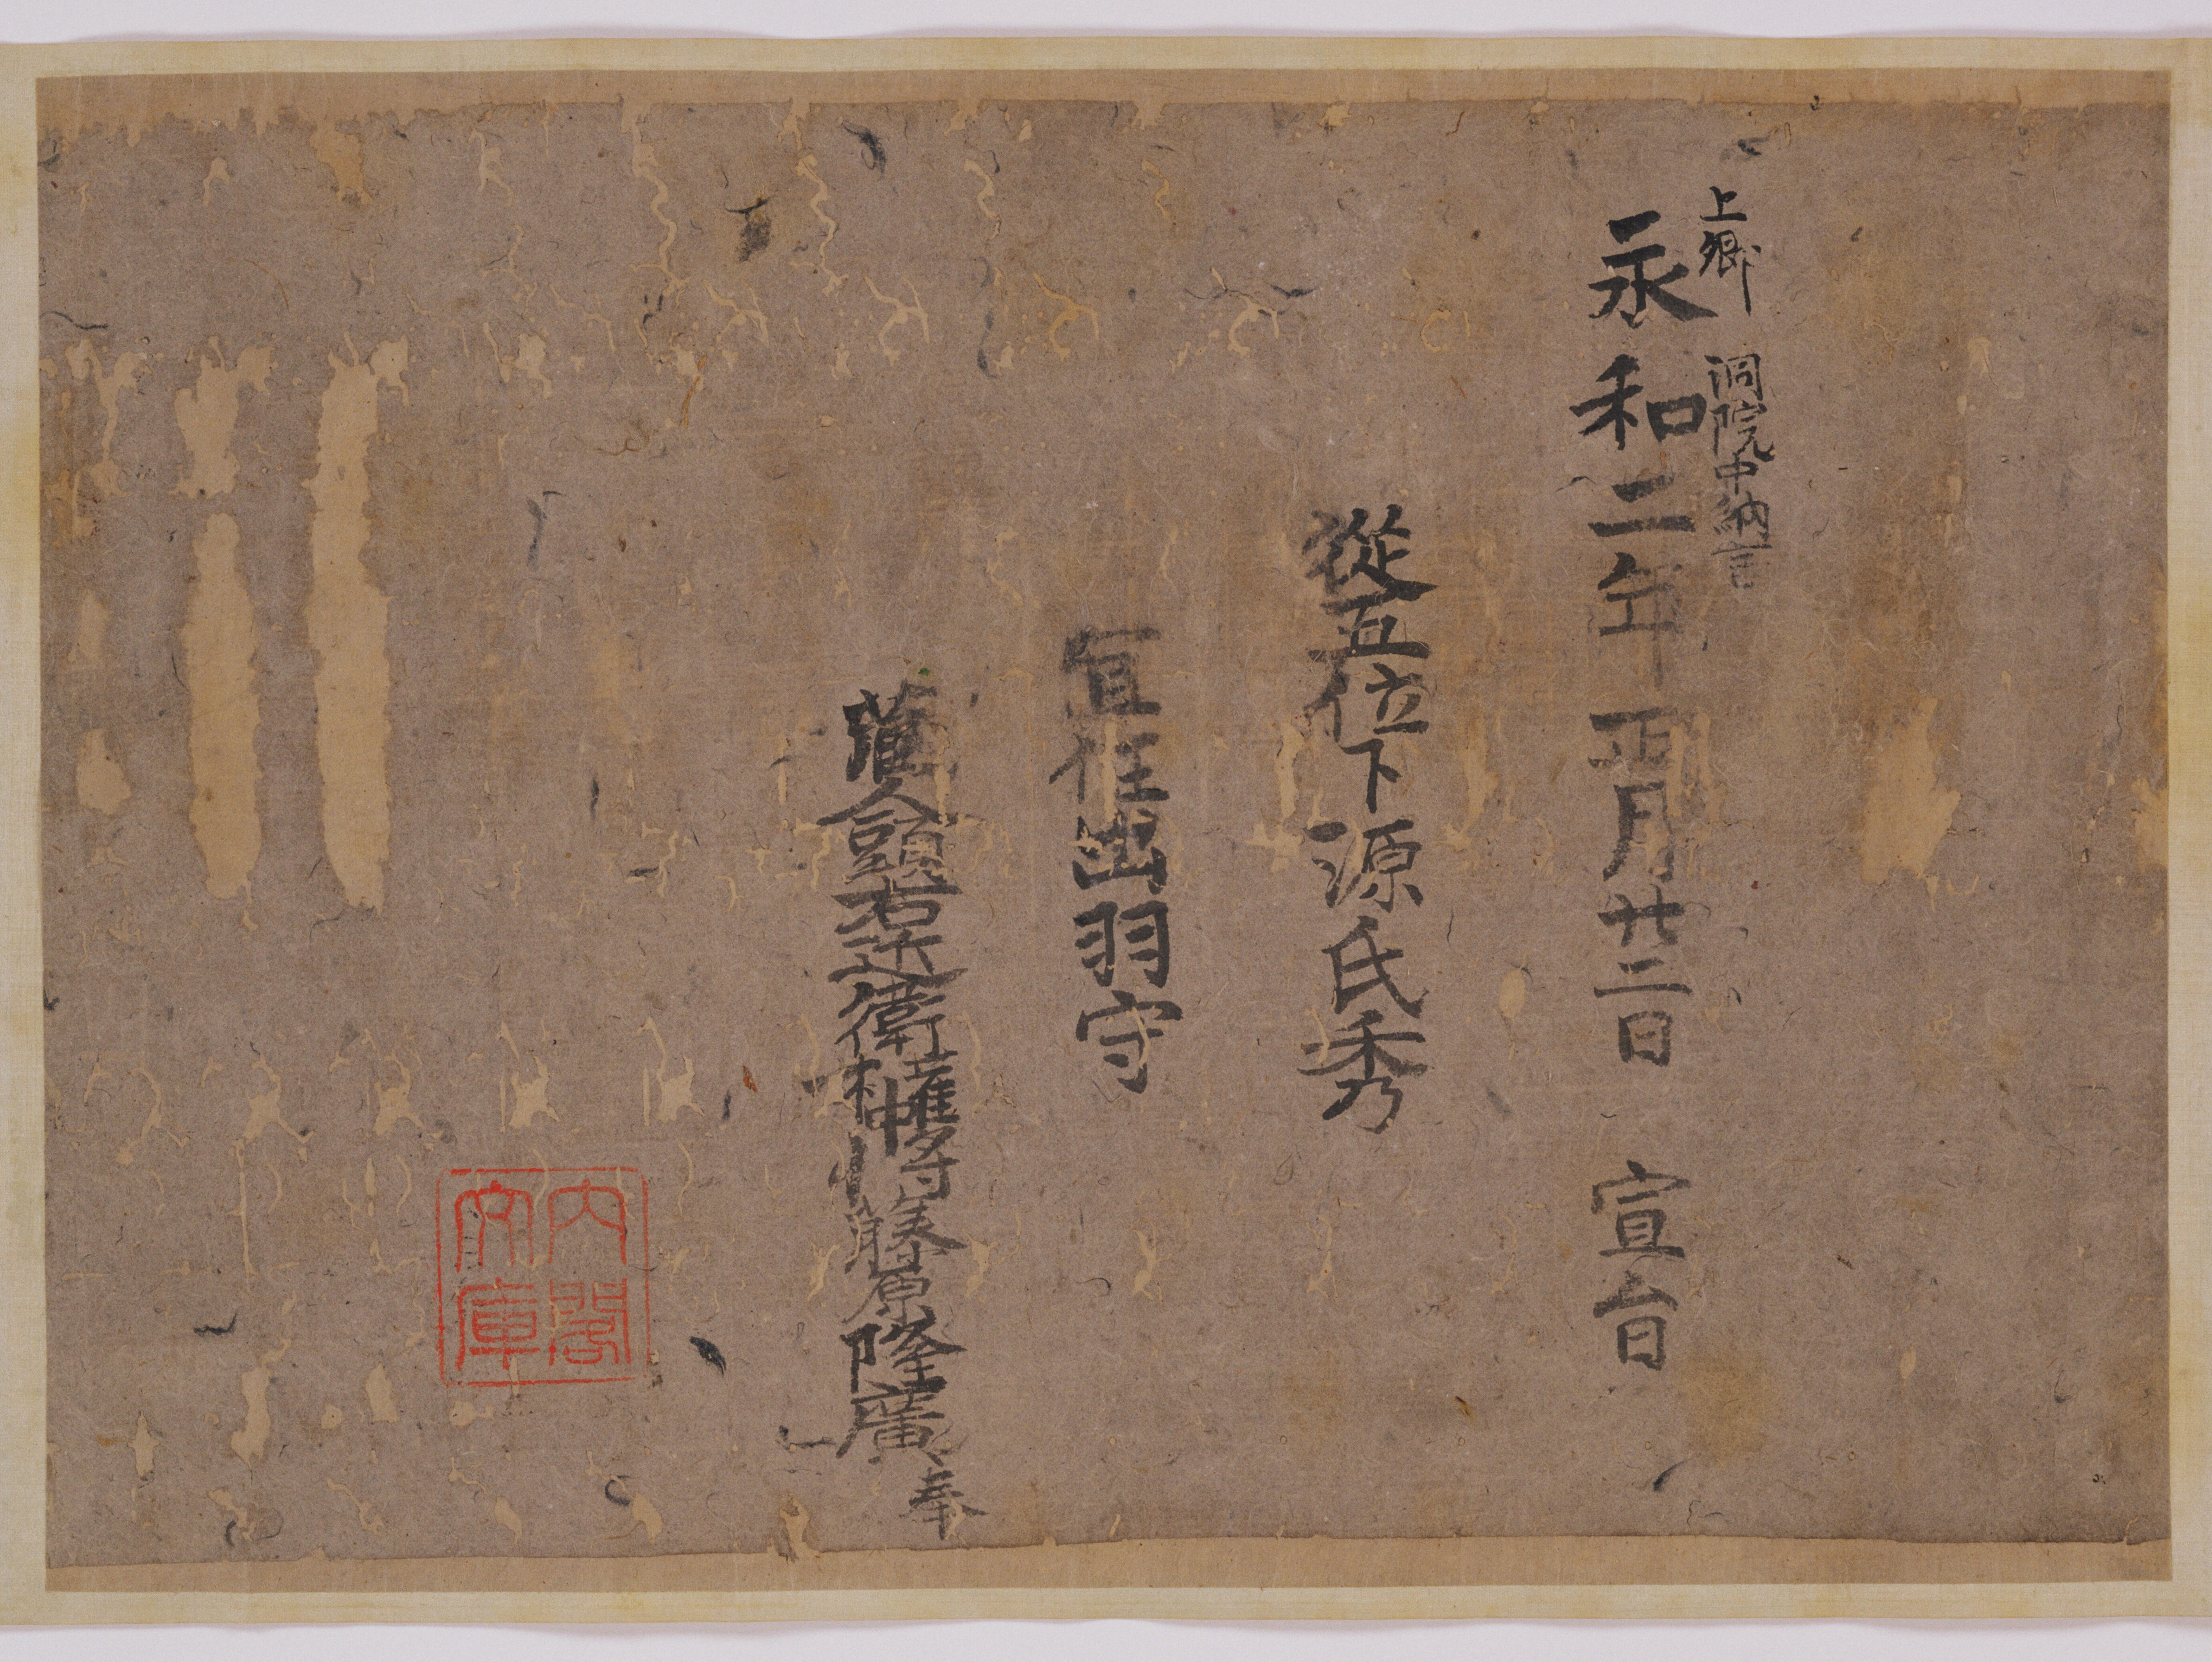 上卿 洞院中納言
永和二年正月廿二日 宣旨
從五位下源氏秀
宜任出羽守
藏人頭右近衛権中将藤原隆廣奉
内閣
文庫